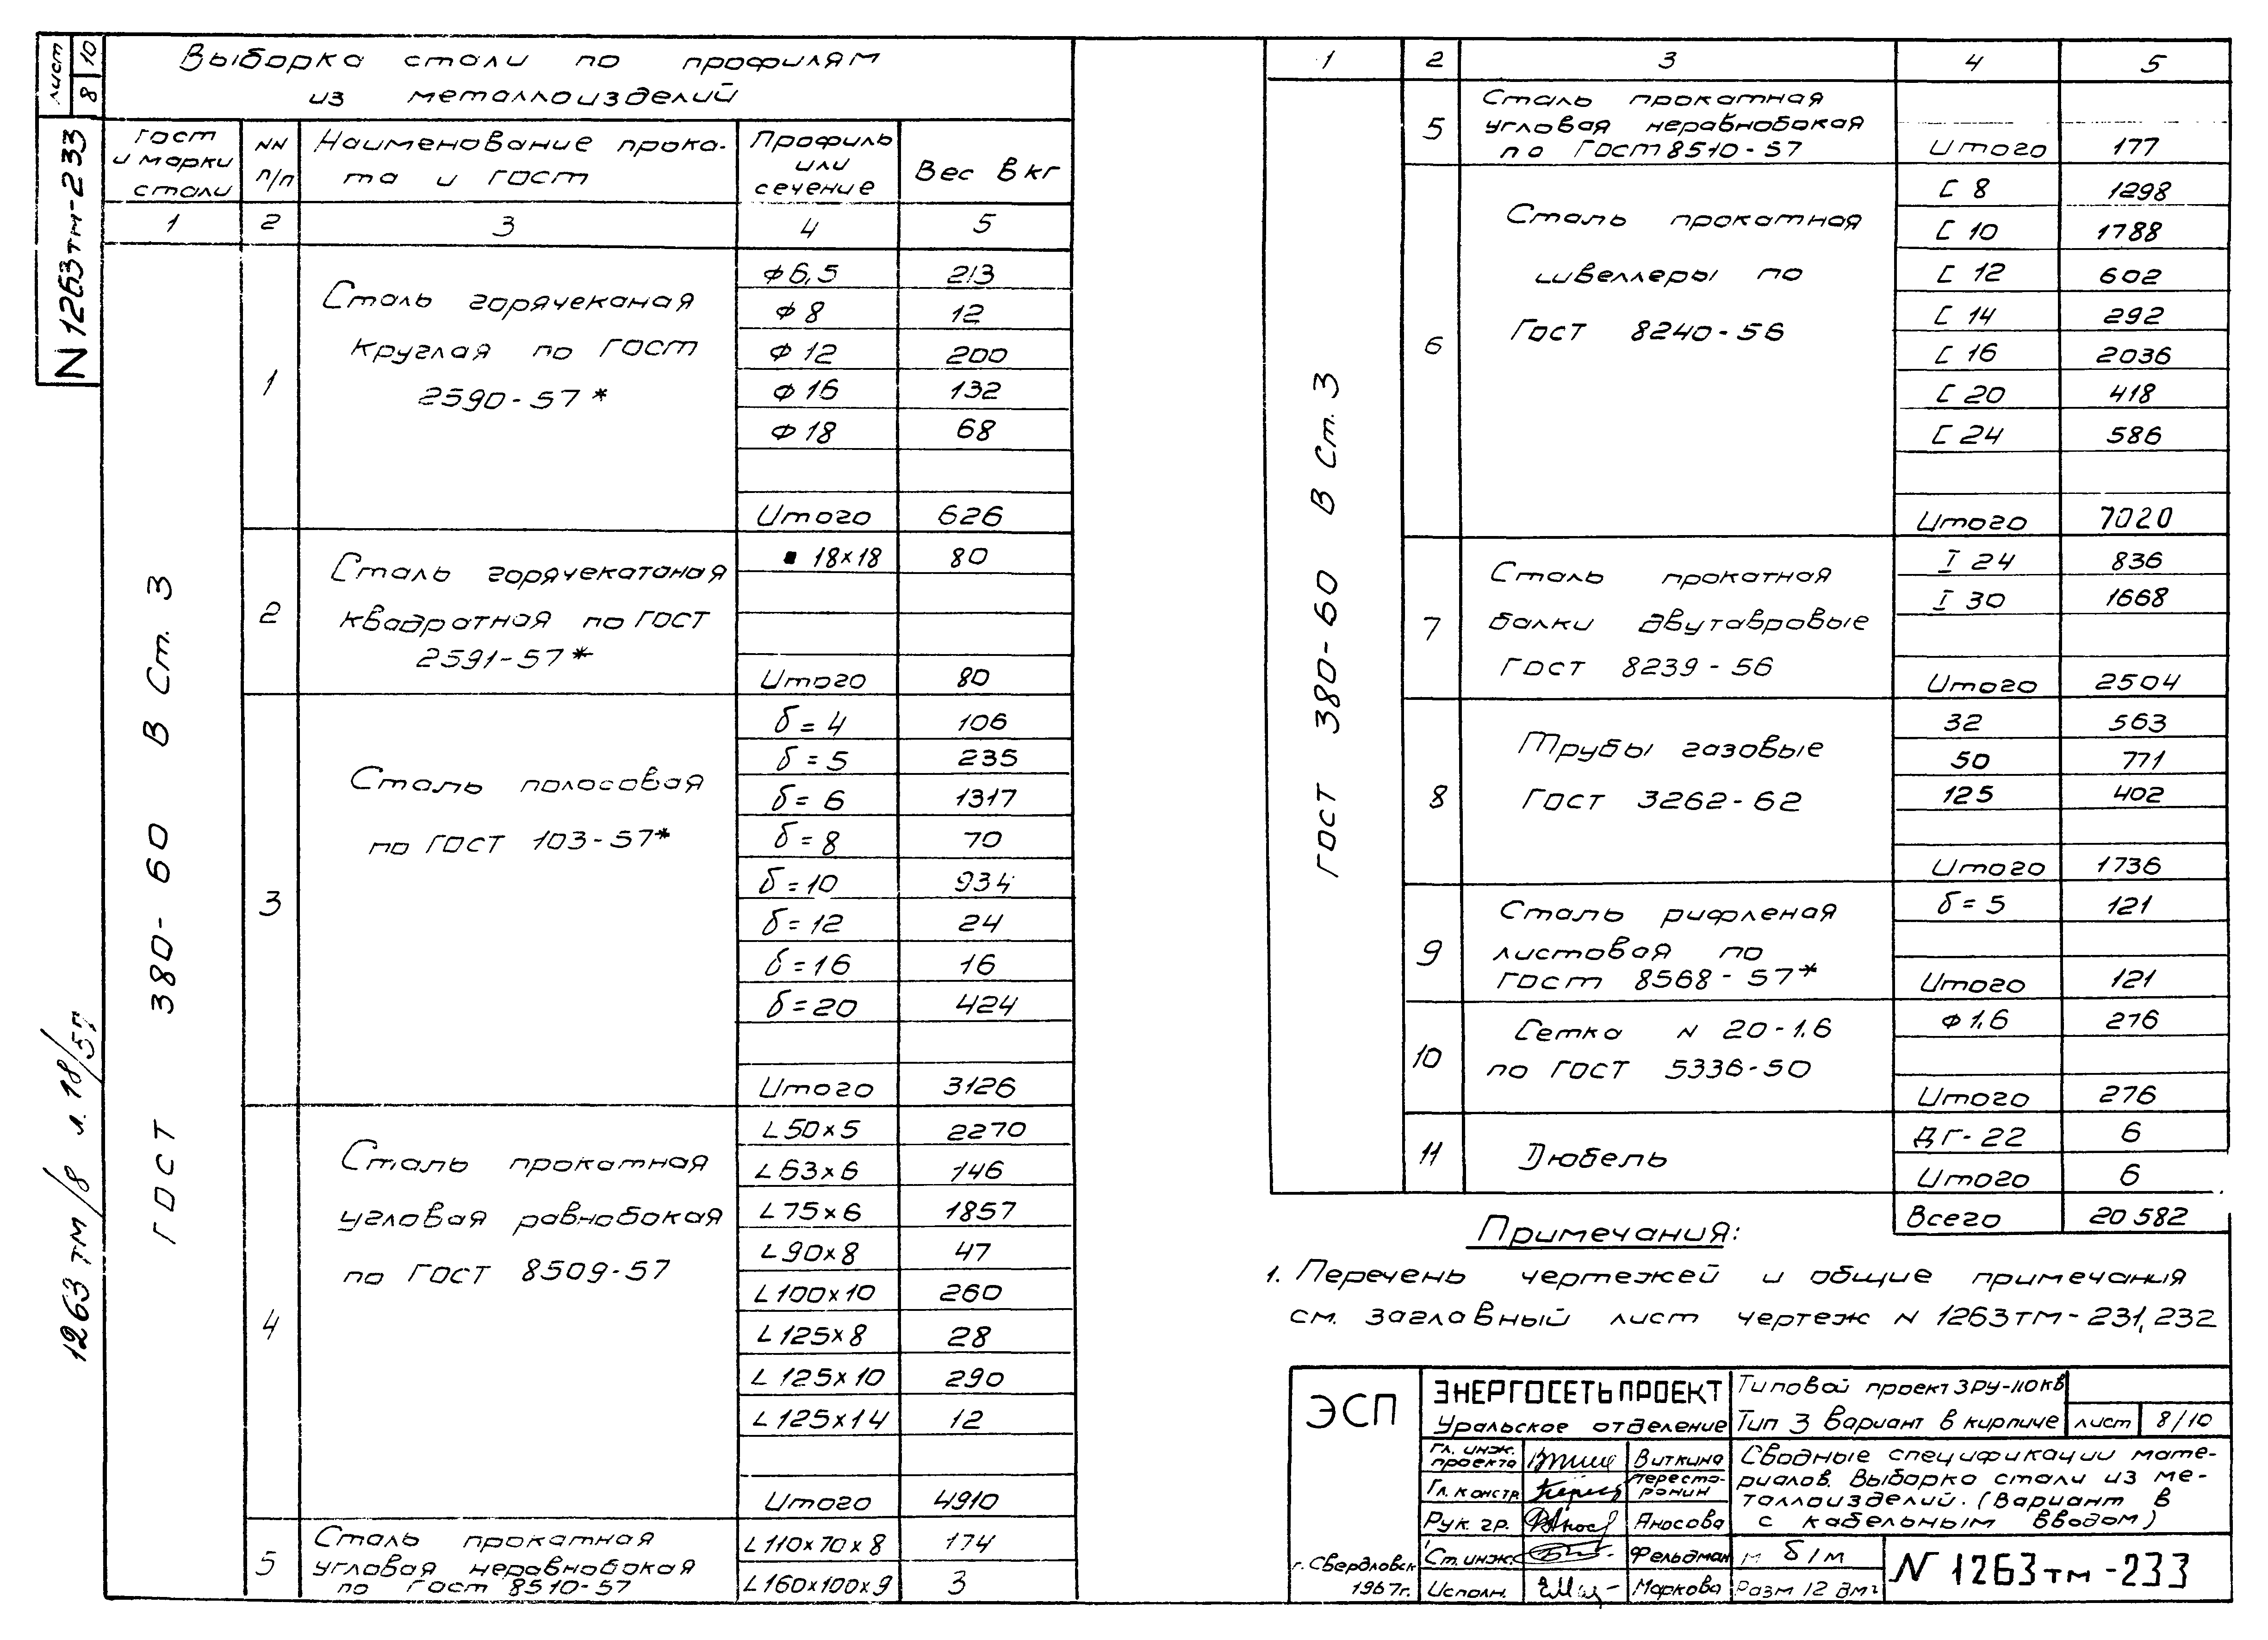 лист 8 10
N 1263тм-233
1263 тм/8 л. 18/57
Выборка стали по профилям
из металлоизделий
Гост и марки стали | NN п/п | Наименование прока- та и гост | Профиль или сечение | Вес в кг
1 2 3 4 5
ГОСТ 380-60 В Ст. 3
1
Сталь горячеканая
круглая по гост
2590-57*
Ф6,5 213
Ф8 12
Ф12 200
Ф16 132
Ф18 68
Итого 626
2
Сталь горячекатаная
квадратная по гост
2591-57*
18x18 80
Итого 80
3
Сталь полосовая
по гост 103-57*
δ=4 106
δ=5 235
δ=6 1317
δ=8 70
δ=10 934
δ=12 24
δ=16 16
δ=20 424
Итого 3126
4
Сталь прокатная
угловая равнобокая
по гост 8509-57
L50x5 2270
L63x6 146
L75x6 1857
L90x8 47
L100x10 260
L125x8 28
L125x10 290
L125x14 12
Итого 4910
5
Сталь прокатная
угловая неравнобокая
по гост 8510-57
L110x70x8 174
L160x100x9 3
1 2 3 4 5
ГОСТ 380-60 В Ст. 3
5
Сталь прокатная
угловая неравнобокая
по Гост 8510-57
Итого 177
6
Сталь прокатная
швеллеры по
Гост 8240-56
[ 8 1298
[ 10 1788
[ 12 602
[ 14 292
[ 16 2036
[ 20 418
[ 24 586
Итого 7020
7
Сталь прокатная
балки двутавровые
Гост 8239-56
I 24 836
I 30 1668
Итого 2504
8
Трубы газовые
Гост 3262-62
32 563
50 771
125 402
Итого 1736
9
Сталь рифленая
листовая по
Гост 8568-57*
δ=5 121
Итого 121
10
Сетка N 20-1.6
по гост 5336-50
Ф1,6 276
Итого 276
11
Дюбель
ДГ-22 6
Итого 6
Всего 20582
Примечания:
1. Перечень чертежей и общие примечания
см. заглавный лист чертеж N 1263тм-231,232
ЭСП
г. Свердловск
1967г.
ЭНЕРГОСЕТЬПРОЕКТ
Уральское отделение
Гл. инж. проекта Виткина
Гл. констр. Пересторонин
Рук. гр. Аносова
Ст. инж. Фельдман
Исполн. Маркова
Типовой проект ЗРУ-110кв
Тип 3 Вариант в кирпиче лист 8/10
Сводные спецификации мате-
риалов. Выборка стали из ме-
таллоизделий. (Вариант в
с кабельным вводом)
м б/м
Разм 12 дм²
N 1263тм-233